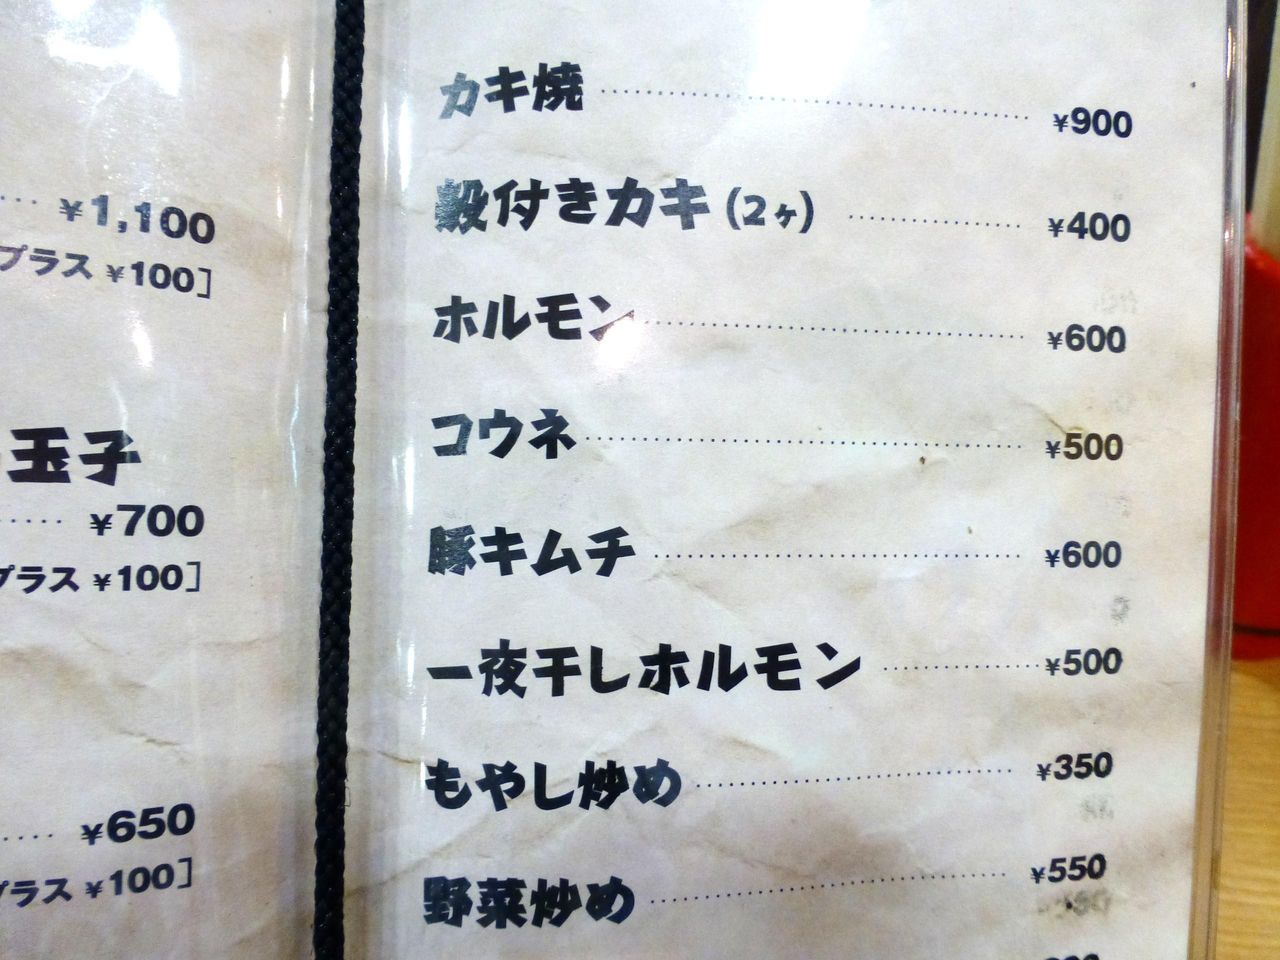 ¥1,100
プラス ¥100]
玉子
¥700
プラス ¥100]
¥650
プラス ¥100]
カキ焼 ¥900
殻付きカキ(2ヶ) ¥400
ホルモン ¥600
コウネ ¥500
豚キムチ ¥600
一夜干しホルモン ¥500
もやし炒め ¥350
野菜炒め ¥550